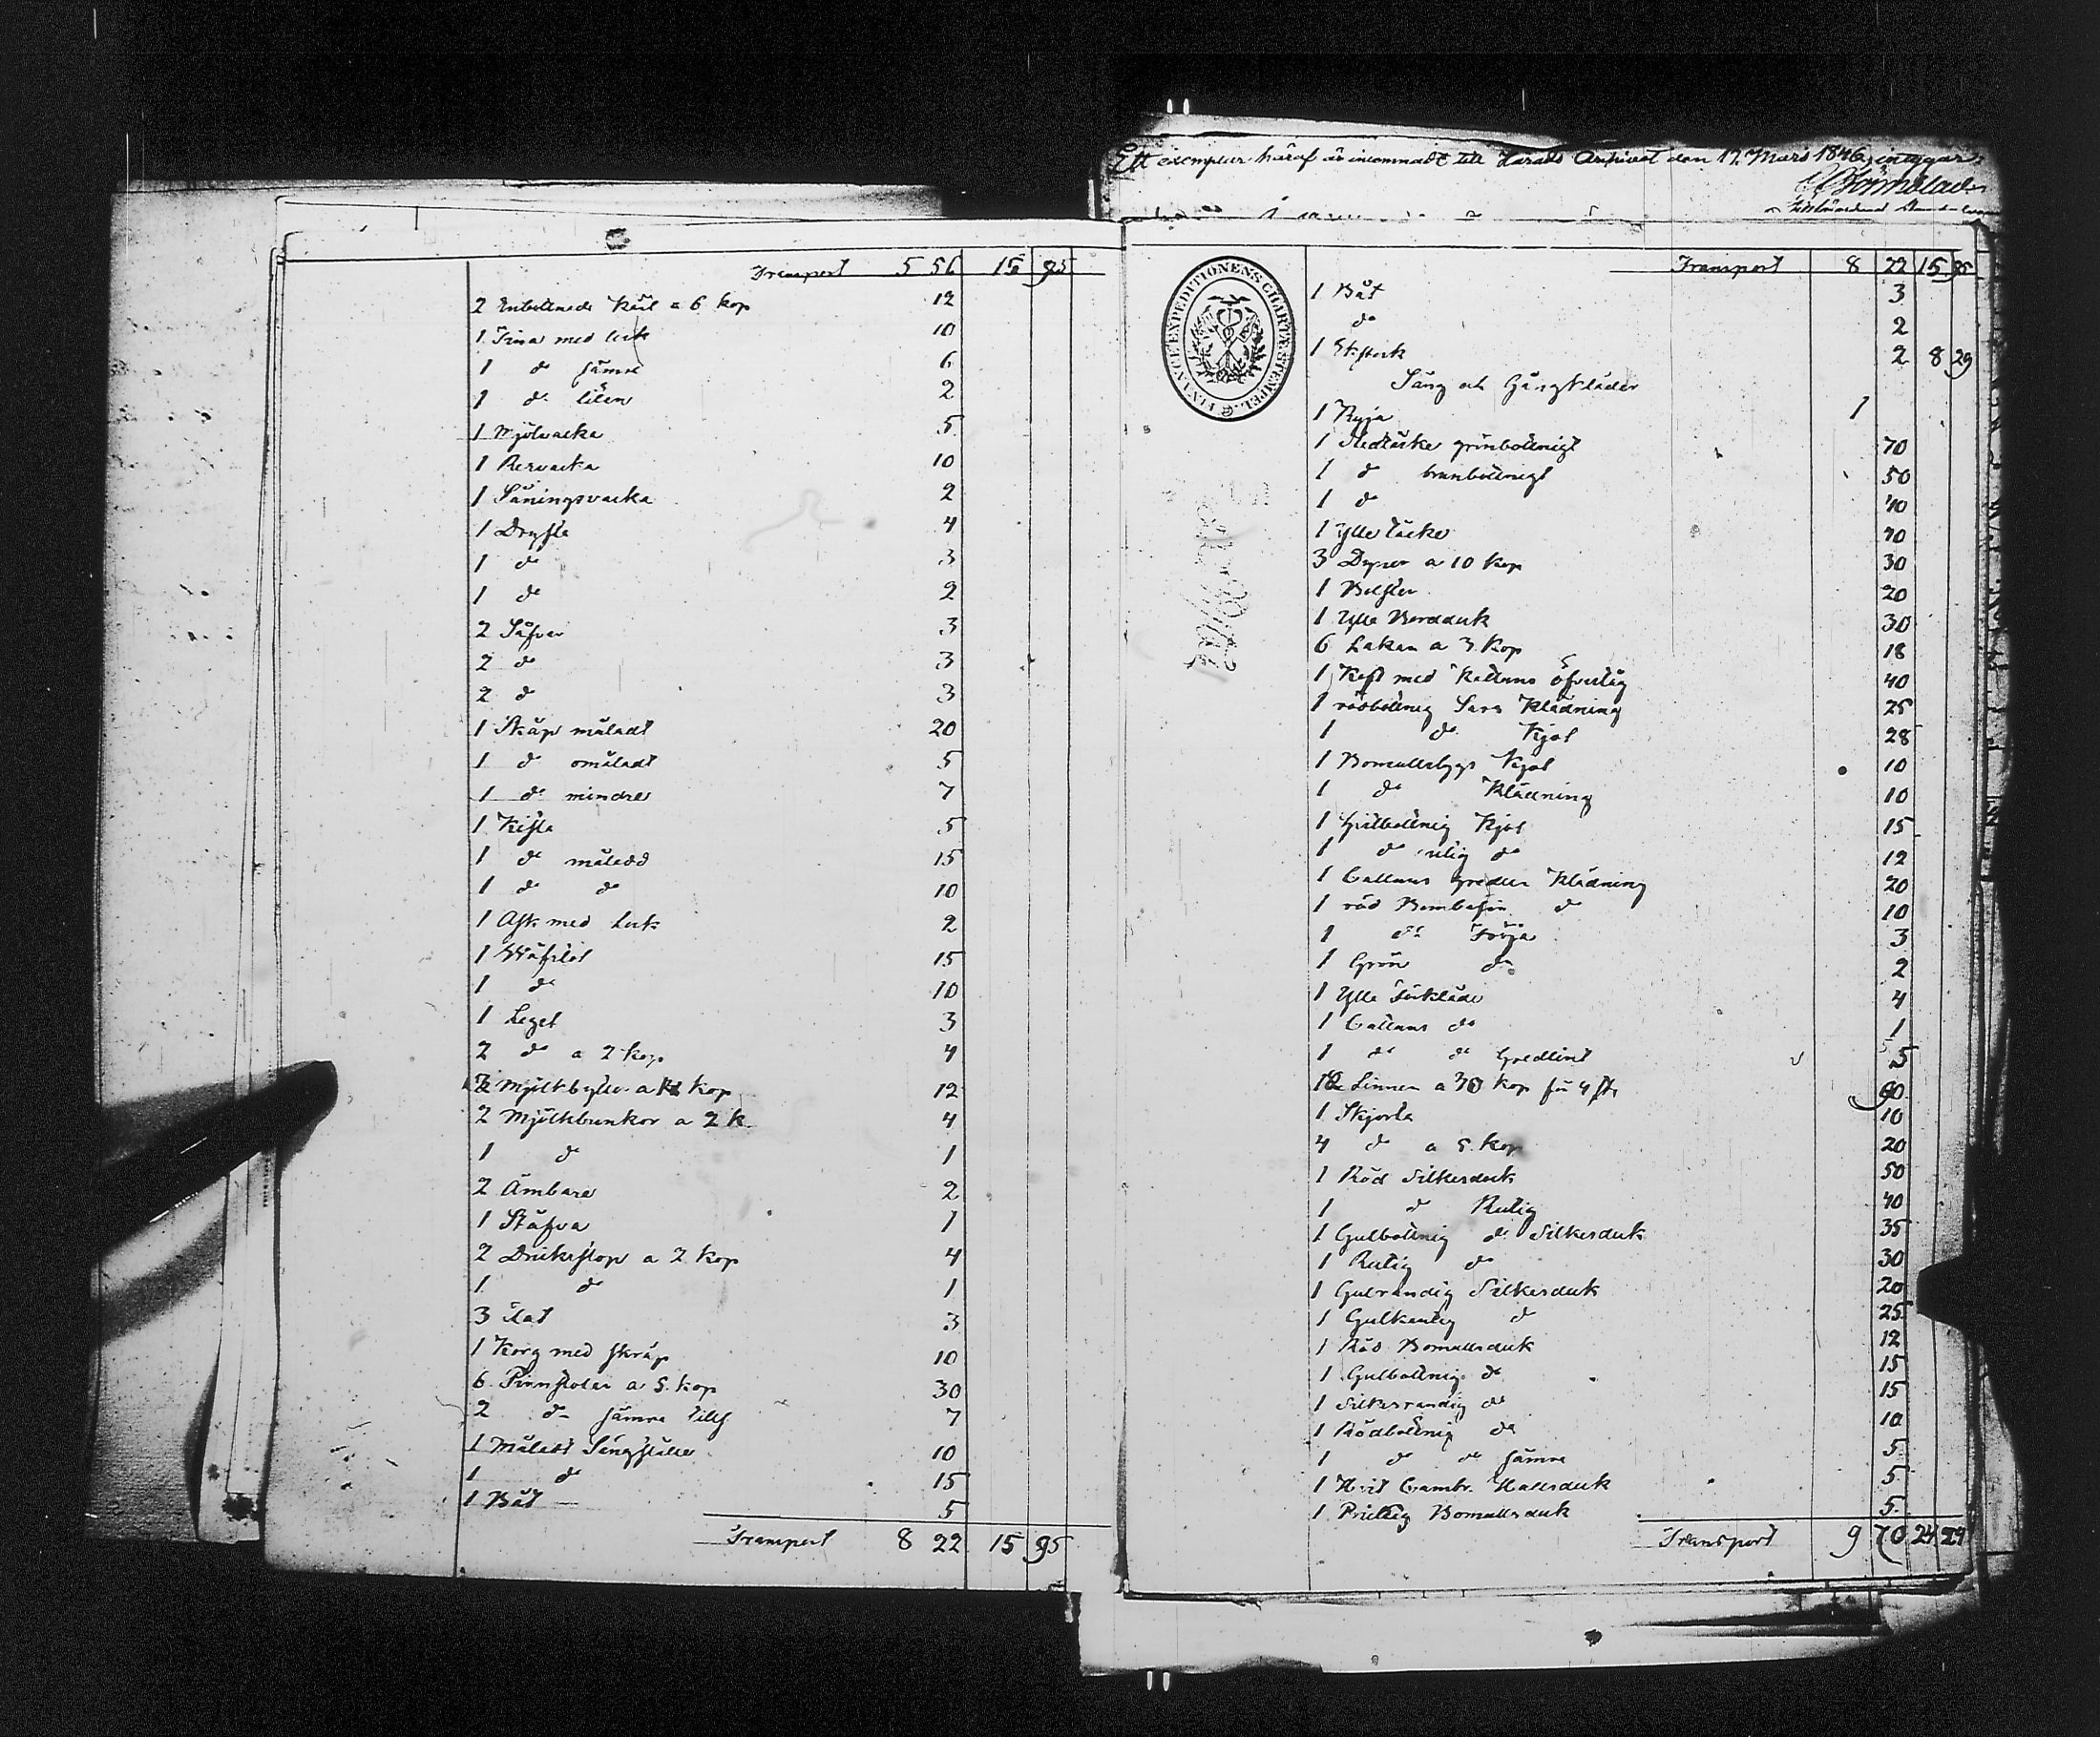 Transport 5 56 15 95
2 Enbottnade Kärl a 6 kop 12
1 Tina med lock 10
1 do sämre 6
1 do liten 2
1 Mjölvacka 5
1 vacka 10
1 Såningsvacka 2
1 Dryfta 4
1 do 3
1 do 2
2 Såfvar 3
2 do 3
2 do 3
1 Skåp måladt 20
1 do omåladt 5
1 do mindre 7
1 Kista 5
1 do målad 15
1 do do 10
1 Ask med Lock 2
1 Wäfstol 15
1 do 10
1 Legel 3
2 do a 2 kop 4
Mjölkbyttor a kop 12
2 Mjölkbunkor a 2 k. 4
1 do 1
2 Ämbare 2
1 Stäfva 1
2 Drickstop a 2 kop 4
1 do 1
3 3
1 Korg med skräp 10
6 Pinnstolar a 5 kop 30
2 do sämre tills 7
1 Målad Sängställe 10
1 do 15
1 Båt 5
Transport 8 22 15 95
Ett exemplar häraf är inkommadt till Härads Arkivet den 17 Mars 1846, intygar
FINANCE EXPEDITIONENS CHARTÆ STEMPEL
Transport 8 22 15 95
1 Båt 3
do 2
1 Ekstock 2 8 29
Säng och Gångkläder
1 Ryja 1
1 Sticktäcke grönbottnigt 70
1 do brunbottnigt 50
1 do 40
1 Ylle täcke 40
3 Dynor a 10 kop 30
1 Bolster 20
1 Ylle Bordduk 30
6 Lakan a 3 Kop 18
1 med Kattuns öfvertåg 40
1 rödbottnig Sars Klädning 25
1 do Kjol 28
1 Bomullstygs Kjol 10
1 do Klädning 10
1 Gulbottnig Kjol 15
1 do rutig do 12
1 Cattuns gredlin Klädning 20
1 röd Bombasin do 10
1 do Tröja 3
1 Grön do 2
1 Ylle Förkläde 4
1 Cattuns do 1
1 do do Gredlint 5
Linnen a kop för 4 st. 90
1 Skjorta 10
4 do a 5 kop 20
1 Röd Silkesduk 50
1 do Rutig 40
1 Gulbottnig do Silkesduk 35
1 Rutig do 30
1 Gulrandig Silkesduk 20
1 Gulkantig do 25
1 Röd Bomullsduk 12
1 Gulbottnig do 15
1 Silkesrandig do 15
1 Rödbottnig do 10
1 do do sämre 5
1 Hvit Cambr. Halsduk 5
1 Prickig Bomullsduk 5
Transport 9 70 24 24